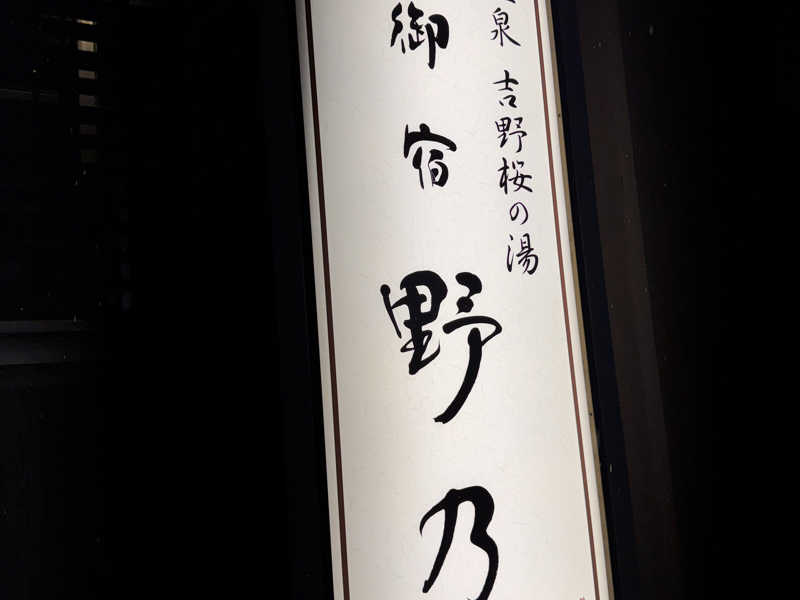 泉 吉野桜の湯
御宿 野乃